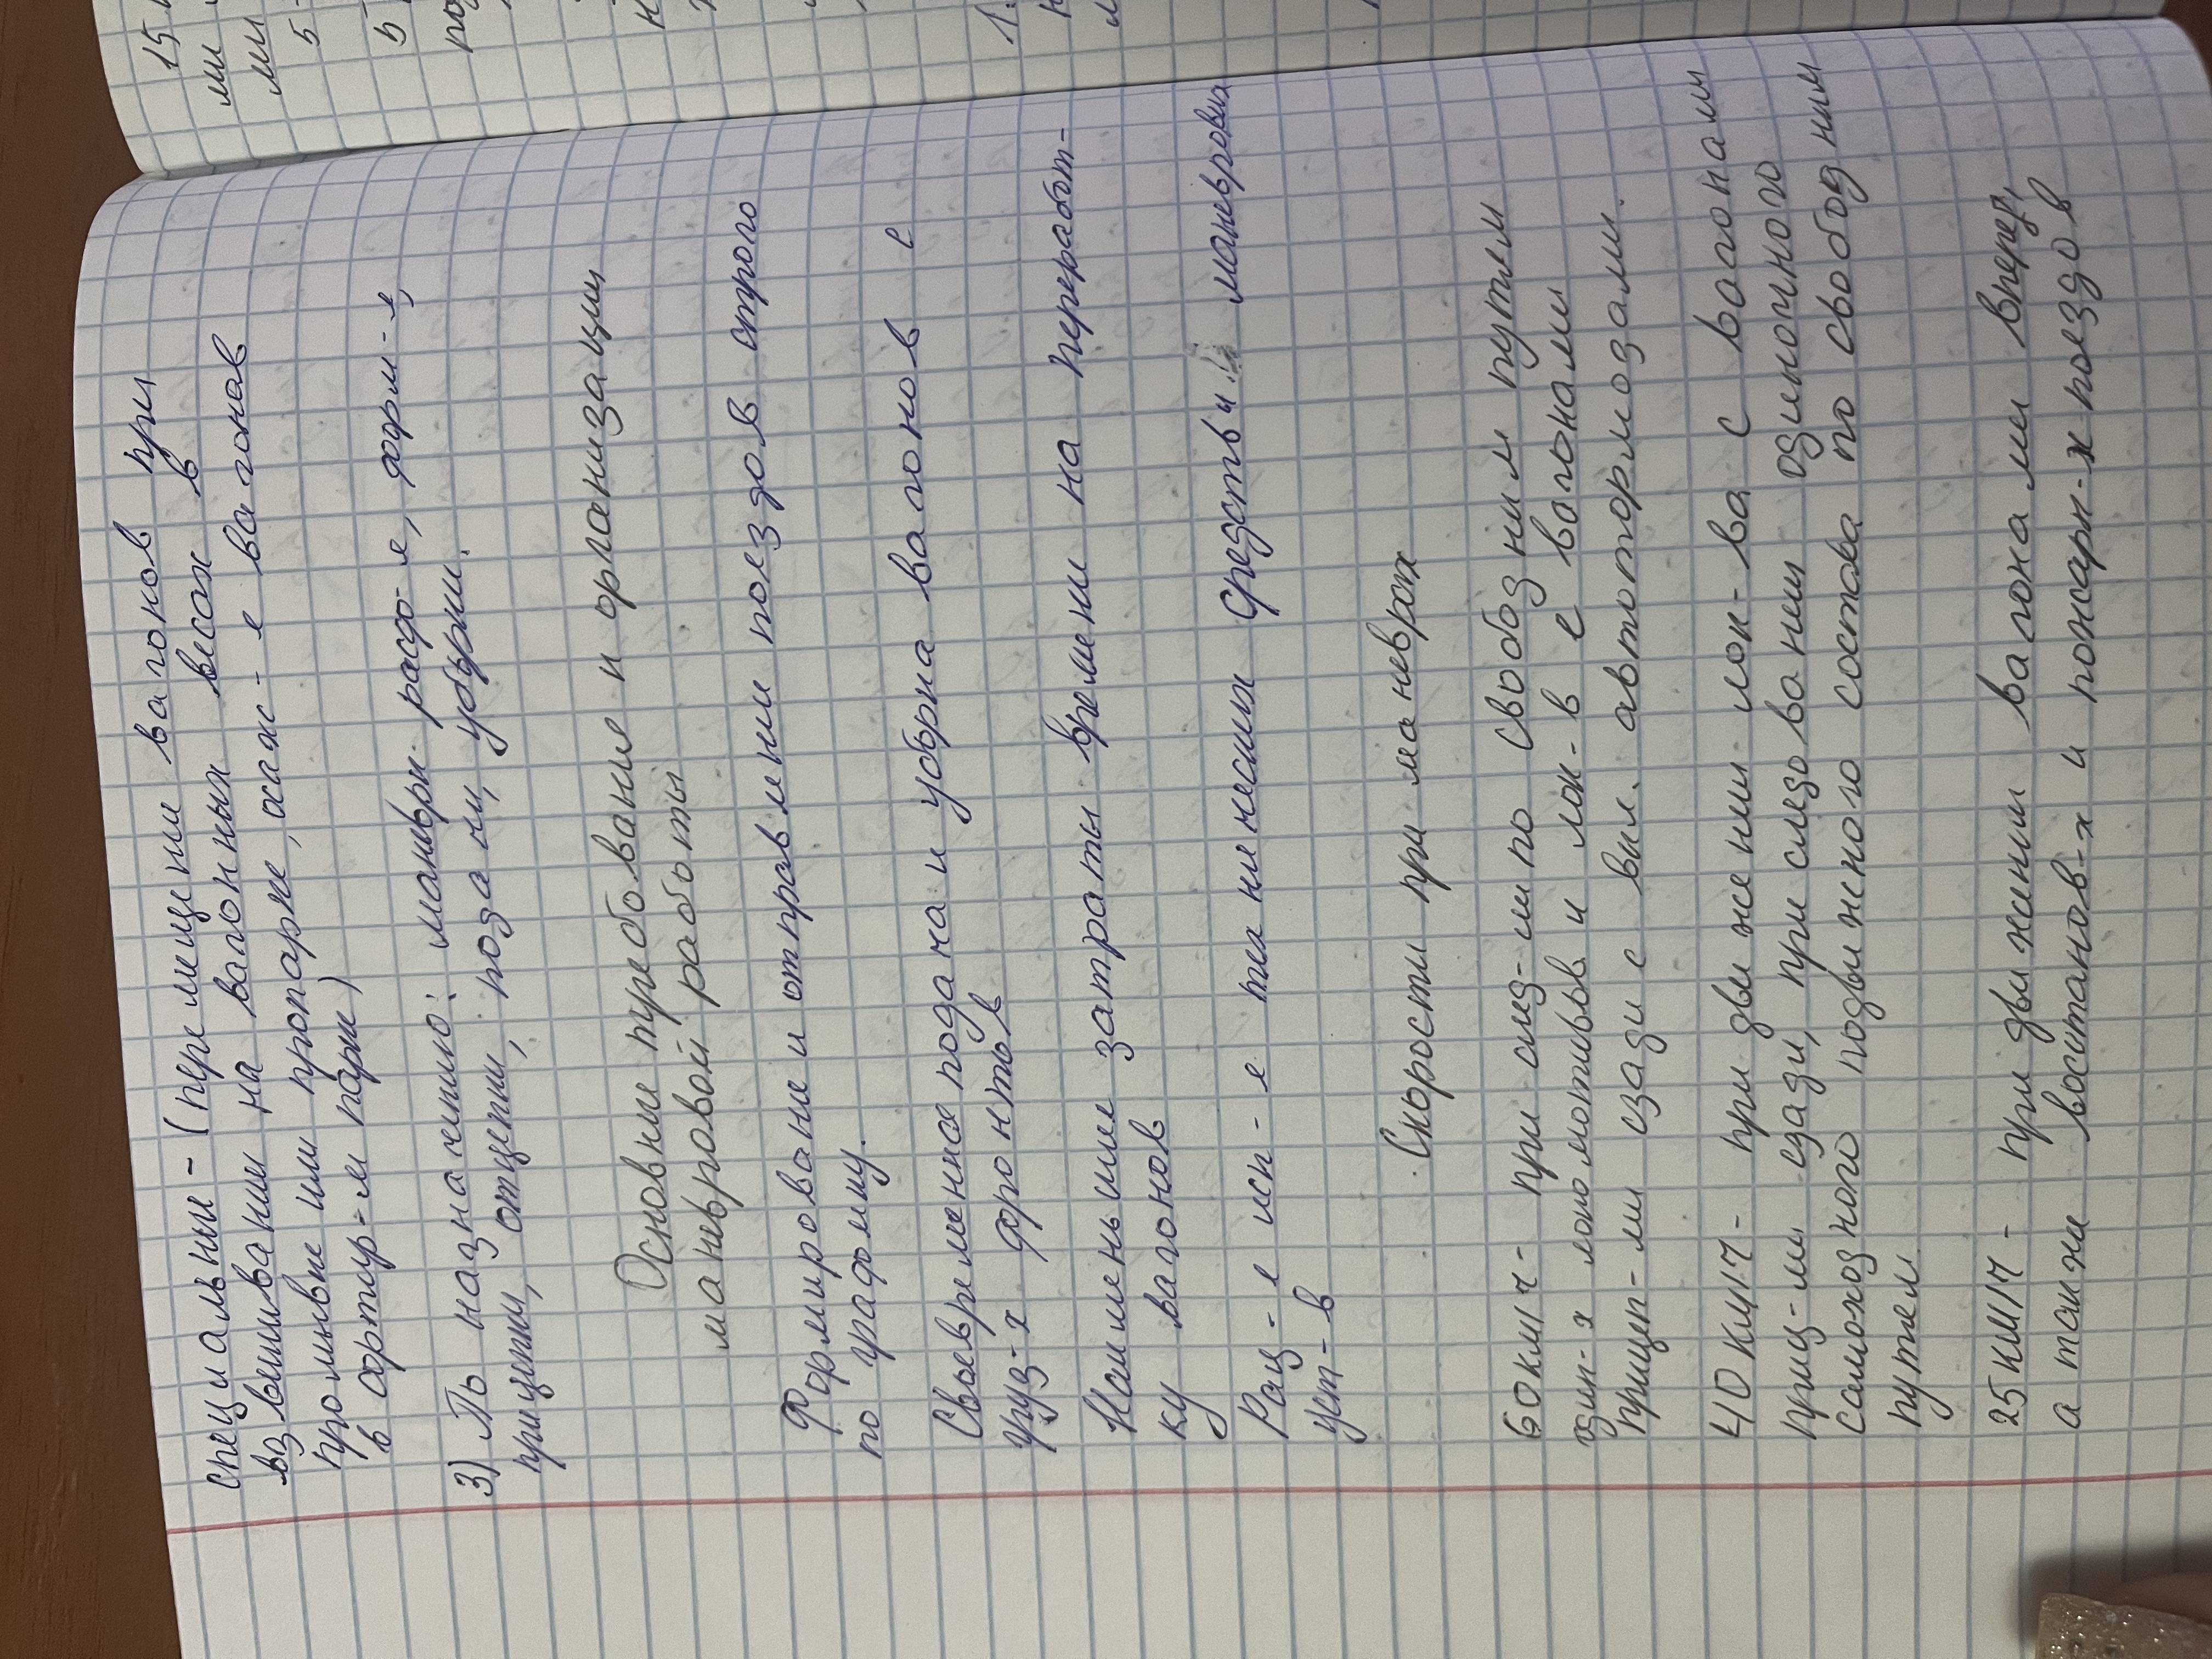 специальные - (перемещении вагонов при
взвешивании на вагонных весах в
промывке или пропарке, охаж-е вагонов
в сортир-м парке)
3) По назначению: маневры расф-е, форм-е,
прицепки, отцепки, подачи, уборки.
Основные требование к организации
маневровой работы
Формирование и отправлении поездов строго
по графику.
Своевременная подача и уборка вагонов с
груз-х фронтов
Наименьшие затраты времени на переработ-
ку вагонов
Рац-е исп-е технических средств и маневровых
уст-в
Скорости при маневрах
60км/ч - при след-ии по свободным путем
один-х локомотивов и лок-в с вагонами
прицеп-ми сзади с вкл. автотормозами.
40км/ч - при движении лок-ва с вагонами
приц-ми сзади, при следовании одиночного
самоходного подвижного состава по свободным
путем
25км/ч - при движении вагонами вперед,
а также востанов-х и пожарн-х поездов
15
ми
ми
5
5
1.